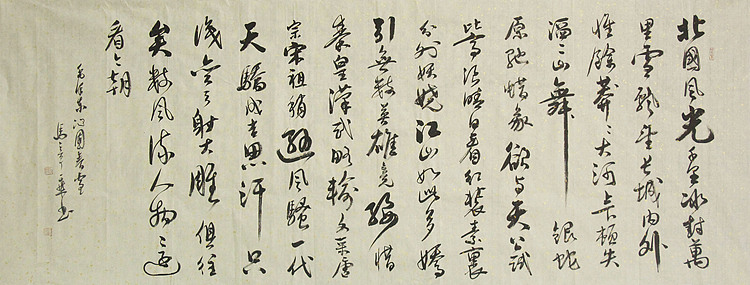 北國風光千里冰封萬
里雪飄望長城內外
惟餘莽々大河上下頓失
滔々山舞銀蛇
原馳蜡象欲与天公試
比高須晴日看紅裝素裹
分外妖嬈江山如此多嬌
引無數英雄競折腰惜
秦皇漢武略輸文采唐
宗宋祖稍遜風騷一代
天驕成吉思汗只
識彎弓射大雕俱往
矣數風流人物還
看今朝
毛澤東沁園春雪